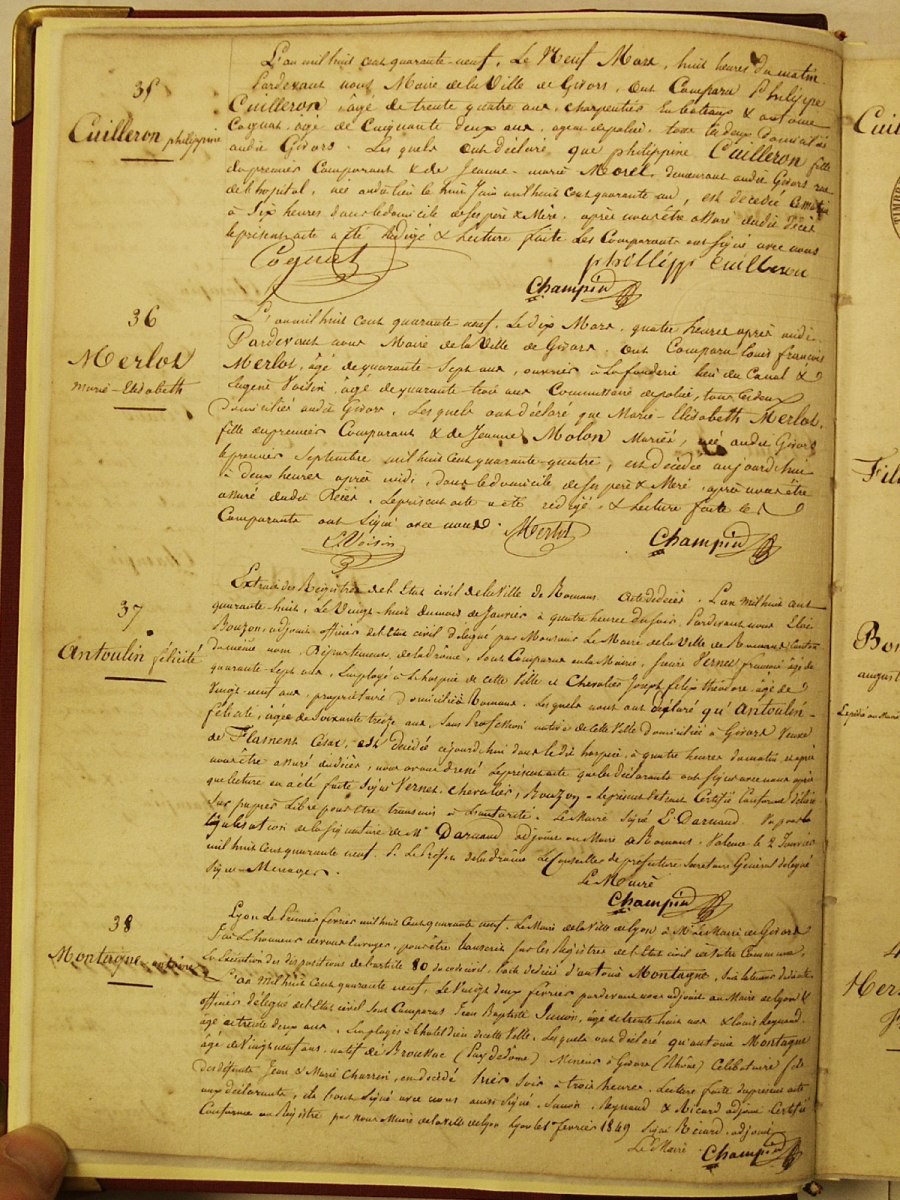 35
Cuilleron philippine
L'an mil huit cent quarante-neuf, Le Neuf Mars, huit heures du matin
Pardevant nous Maire de la Ville de Givors, ont Comparu Philippe
Cuilleron, âgé de trente quatre ans, charpentier en bateaux & antoine
Coquat, âgé de Cinquante deux ans, agent de police, tous les deux Domiciliés
audit Givors. Les quels ont déclaré que philippine Cuilleron fille
du premier Comparant & de Jeanne-marie Morel, demeurant audit Givors rue
de l'hopital, née audit lieu le huit Juin mil huit cent quarante un, est décédée ce matin
à Six heures dans le domicile de ses père & Mère, après nous être assuré dudit décès
le présent acte a été Rédigé & Lecture faite Les Comparants ont signé avec nous
Coquat
philippe Cuilleron
Champin
36
Merlot
Marie-Elisabeth
L'an mil huit cent quarante-neuf, Le dix Mars, quatre heures après midi
Pardevant nous Maire de la Ville de Givors, ont Comparu Louis françois
Merlot, âgé de quarante-sept ans, ouvrier à la fonderie lieu du Canal &
Eugène Voisin, âgé de quarante-trois ans Commissaire de police, tous les deux
Domiciliés audit Givors, Les quels ont déclaré que Marie-Elisabeth Merlot,
fille du premier Comparant & de Jeanne Molon Mariés, née audit Givors
le premier Septembre mil huit cent quarante-quatre, est décédée aujourd'hui
à deux heures après midi, dans le domicile de ses père & Mère, après nous être
assuré dudit Décès. Le présent acte a été rédigé & Lecture faite les
Comparants ont Signé avec nous.
Merlot
E. Voisin
Champin
37
Antoulin félicité
Extrait des Registres de l'Etat civil de la Ville de Romans. Acte de décès. L'an mil huit cent
quarante-huit, Le Vingt-huit du mois de Janvier à quatre heures du soir, Pardevant nous
Bouzon, adjoint officier de l'Etat civil délégué par Monsieur Le Maire de la Ville de Romans, Canton
du même nom, Département de la drôme, Sont Comparus en la Mairie, Vernet françois âgé de
quarante Sept ans, Employé à l'hospice de cette Ville et Chevalier Joseph félix théodore, âgé de
Vingt-neuf ans, propriétaire Domiciliés à Romans. Lesquels nous ont déclaré qu'Antoulin
félicité, âgée de Soixante treize ans, Sans Profession native de cette Ville Domiciliée à Givors Veuve
de Flament César, est décédée cejourd'hui dans ledit hospice, à quatre heures du matin, et après
nous être assuré du décès, nous avons dressé le présent acte que les déclarants ont signé avec nous après
que lecture en a été faite Signé Vernet, Chevalier, Bouzon. Le présent Extrait Certifié Conforme délivré
Sur papier Libre pour être transmis à L'autorité. Le Maire Signé L. Darnaud. Vu pour la
légalisation de la Signature de Mr Darnaud adjoint au Maire de Romans. Valence le 2 Janvier
mil huit cent quarante neuf. P. Le Préfet de la drôme Le Conseiller de préfecture Secrétaire Général délégué
Signé
Le Maire
Champin
38
Montagne antoine
Lyon Le Premier février mil huit Cent quarante neuf. Le Maire de la Ville de Lyon à Mr Le Maire de Givors
J'ai L'honneur de vous envoyer, pour être transcrit sur les Registres de l'Etat civil de votre Commune,
En Exécution des dispositions de l'article 80 du code civil, l'acte de décès d'antoine Montagne,
L'an Mil huit Cent quarante neuf, Le Vingt deux février pardevant nous adjoint au Maire de Lyon &
officier délégué de l'Etat civil Sont Comparus Jean Baptiste Junon, âgé de trente huit ans & Louis Reynaud
âgé de trente deux ans, Employés à l'hôtel dieu de cette Ville, Lesquels ont déclaré qu'antoine Montagne
âgé de Vingt neuf ans, natif de (Puy de Dôme) Mineur à Givors (Rhône) Célibataire fils
des défunts Jean & Marie Charrein, est décédé hier Soir à trois heures. Lecture faite du présent acte
aux déclarants, ils l'ont Signé avec nous ainsi Signé Junon, Reynaud & Ricard adjoint Certifié
Conforme au Registre par Nous Maire de la Ville de Lyon Lyon le 1er février 1849 Signé Ricard adjoint
Le Maire
Champin
Cuil
Fil
Bon
august
4
Mer